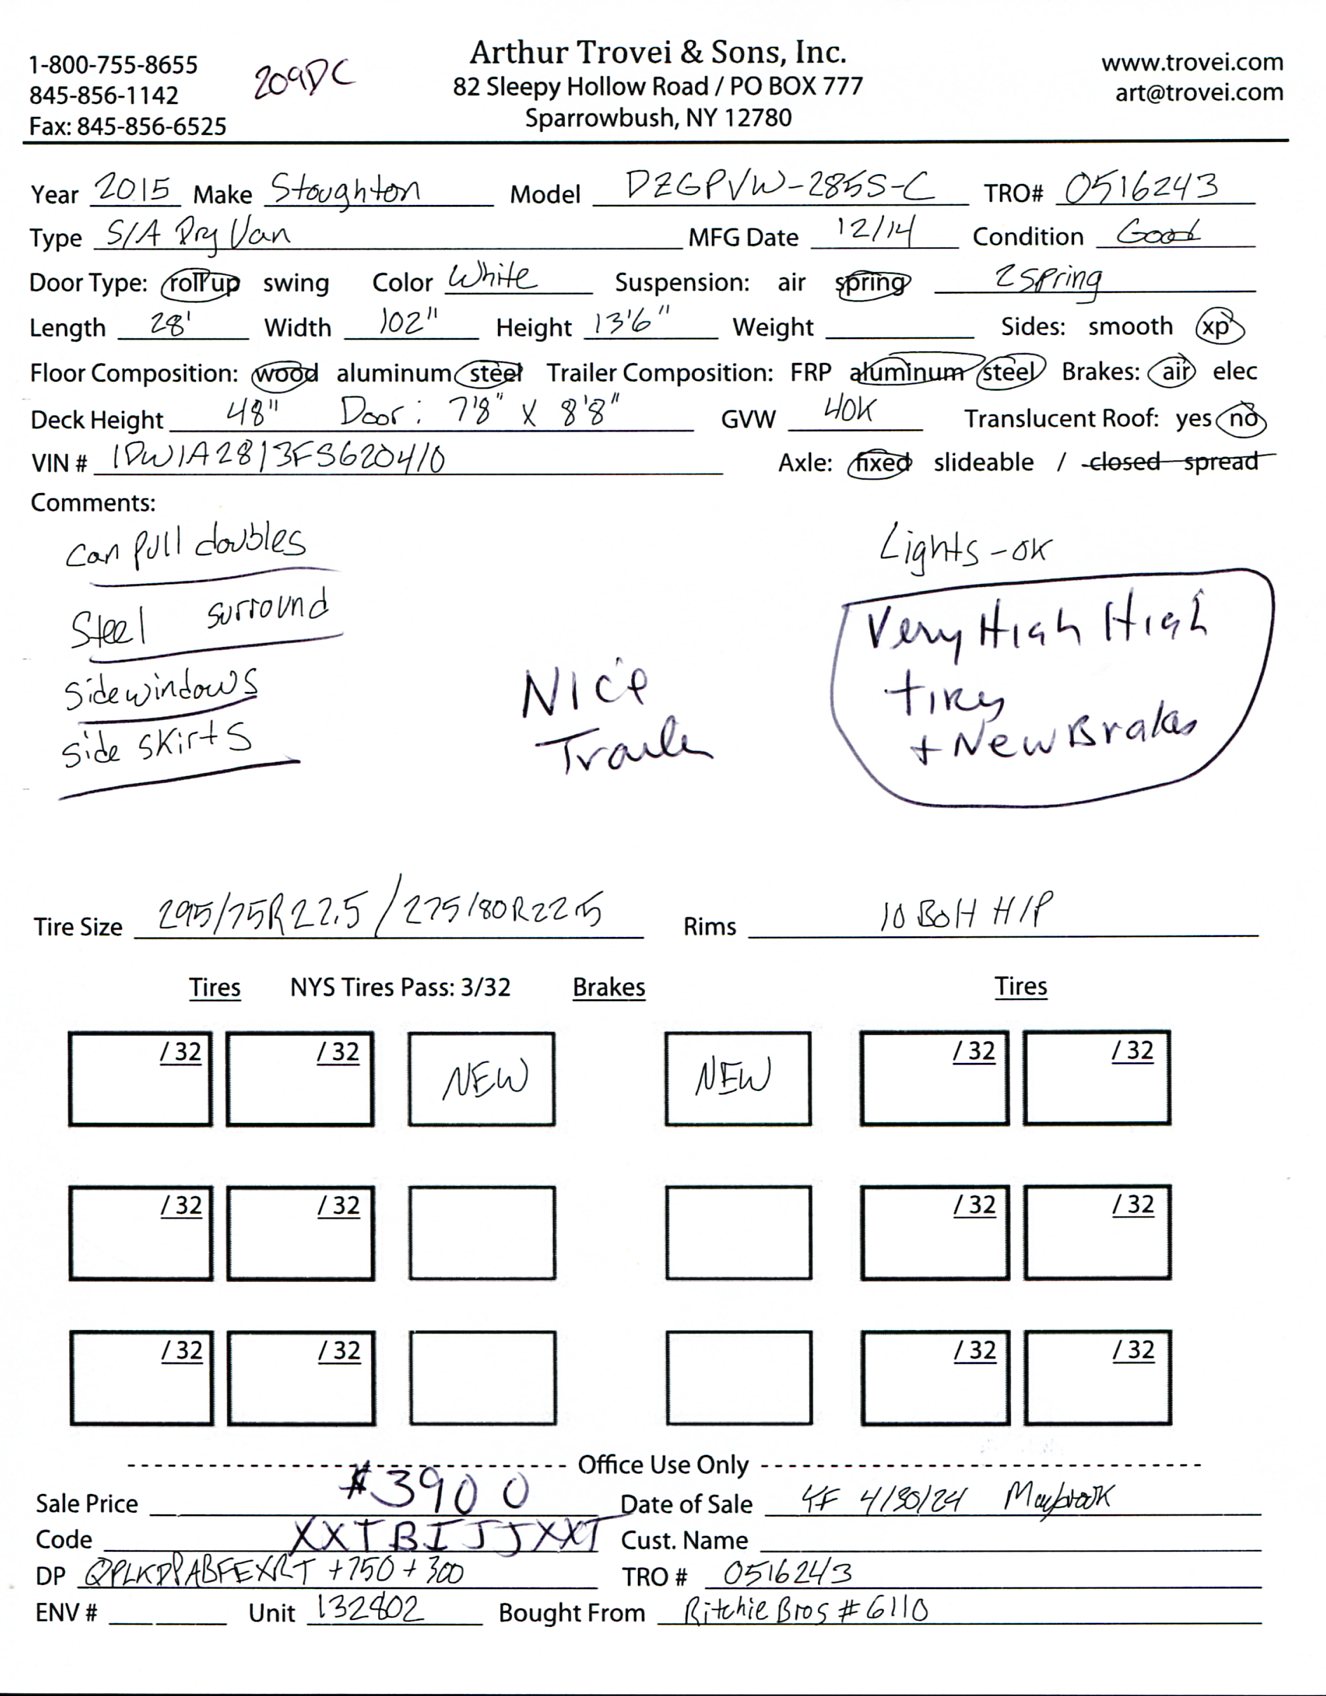 1-800-755-8655
845-856-1142
Fax: 845-856-6525
209DC
Arthur Trovei & Sons, Inc.
82 Sleepy Hollow Road / PO BOX 777
Sparrowbush, NY 12780
www.trovei.com
art@trovei.com
Year 2015 Make Stoughton Model DZGPVW-285S-C TRO# 0516243
Type S/A Dry Van MFG Date 12/14 Condition Good
Door Type: roll up swing Color White Suspension: air spring 2 spring
Length 28' Width 102" Height 13'6" Weight Sides: smooth xp
Floor Composition: wood aluminum steel Trailer Composition: FRP aluminum steel Brakes: air elec
Deck Height 48" Door: 7'8" X 8'8" GVW 40K Translucent Roof: yes no
VIN # 1DW1A2813FS620410 Axle: fixed slideable / closed spread
Comments:
can pull doubles
Steel surround
side windows
side skirts
Nice
Trailer
Lights - ok
Very High High
tires
+ New Brakes
Tire Size 295/75R22.5 / 275/80R22.5 Rims 10 Bolt H/P
Tires NYS Tires Pass: 3/32 Brakes Tires
/32 /32 NEW NEW /32 /32
/32 /32 /32 /32
/32 /32 /32 /32
Office Use Only
Sale Price $3900 Date of Sale YF 4/30/24 Maybrook
Code XXTBIJJXXT Cust. Name
DP QPLKDPABFEXRT +750 + 300 TRO # 0516243
ENV # Unit 132802 Bought From Ritchie Bros # 6110